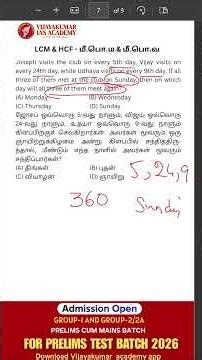 VIJAYAKUMAR
IAS ACADEMY
LCM & HCF - மீ.பொ.ம & மீ.பொ.வ
Joseph visits the club on every 5th day, Vijay visits on
every 24th day, while Udhaya visits on every 9th day. If all
three of them met at the club on Sunday, then on which
day will all three of them meet again?
(A) Monday (B) Wednesday
(C) Thursday (D) Sunday
ஜோசப் ஒவ்வொரு 5-வது நாளும், விஜய் ஒவ்வொரு
24-வது நாளும், உதயா ஒவ்வொரு 9-வது நாளும்
கிளப்பிற்குச் செல்கிறார்கள். அவர்கள் மூவரும் ஒரு
ஞாயிற்றுக்கிழமை அன்று கிளப்பில் சந்தித்திரு
ந்தால், மீண்டும் எந்த நாளில் அவர்கள் மூவரும்
சந்திப்பார்கள்?
(A) திங்கள் (B) புதன்
(C) வியாழன் (D) ஞாயிறு
5,24,9
360
Sunday
Admission Open
GROUP-I AND GROUP-2/2A
PRELIMS CUM MAINS BATCH
FOR PRELIMS TEST BATCH 2026
Download Vijayakumar academy app